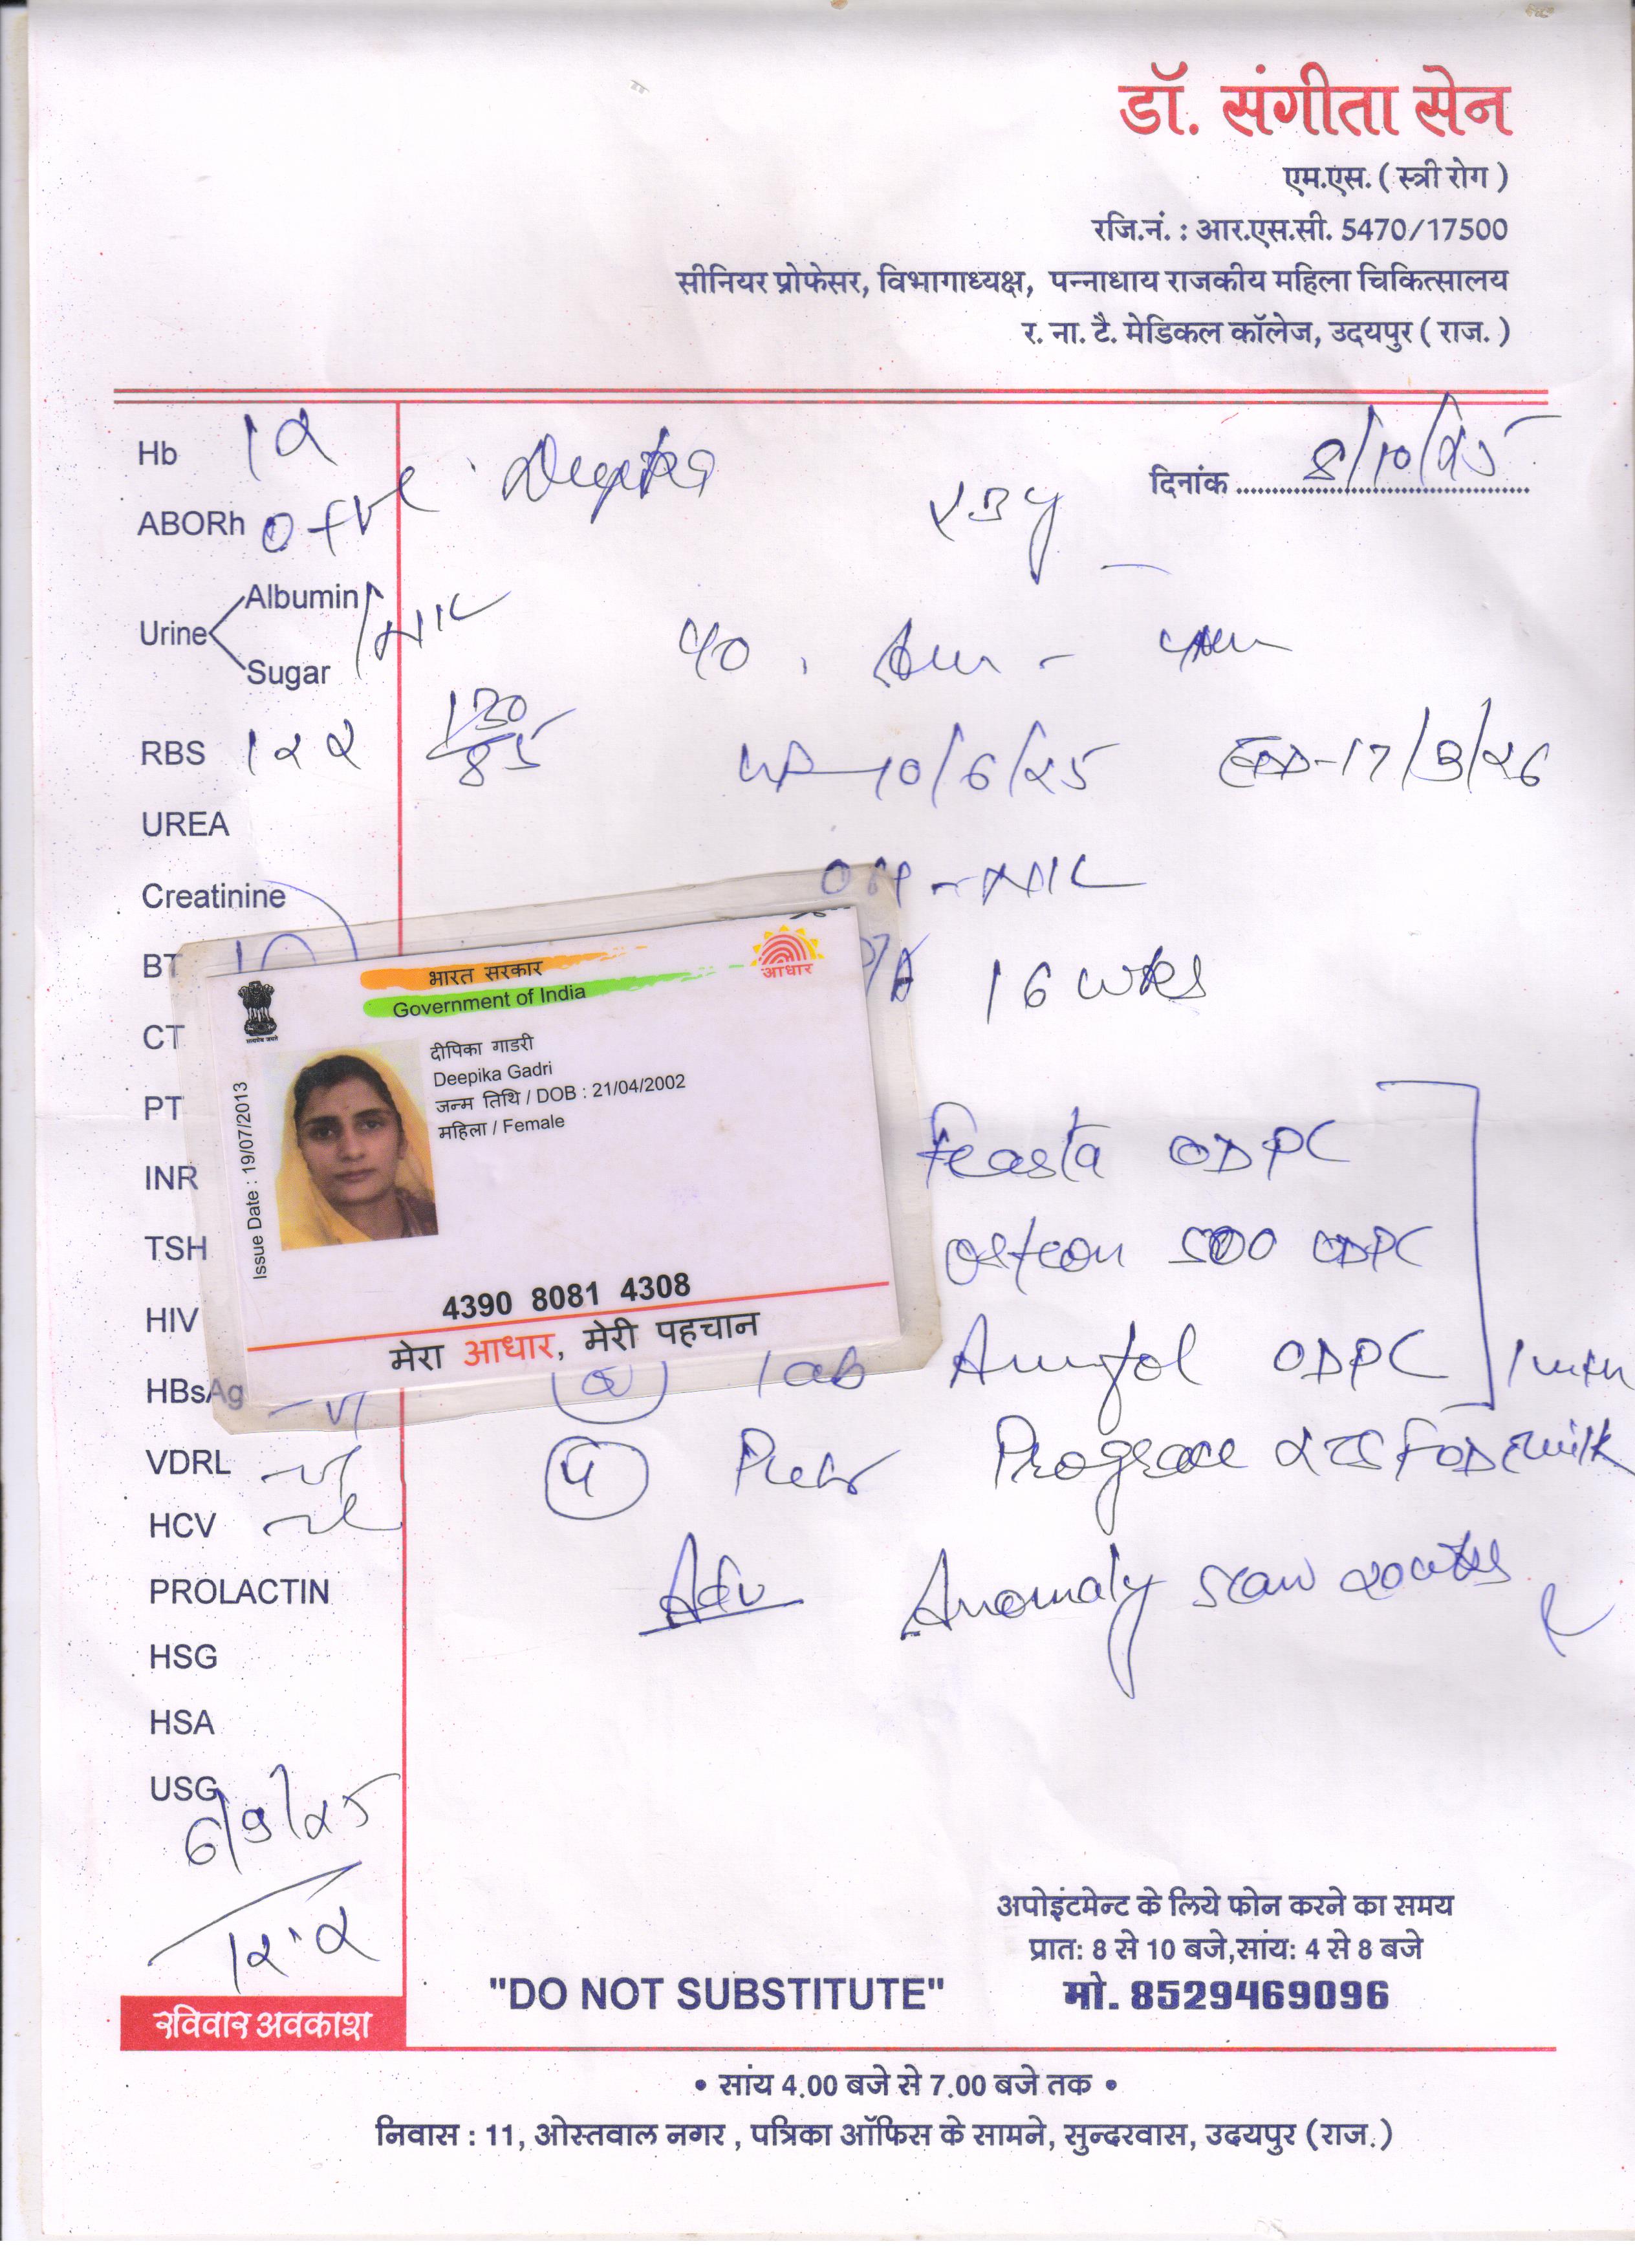 डॉ. संगीता सेन
एम.एस. ( स्त्री रोग )
रजि.नं. : आर.एस.सी. 5470/17500
सीनियर प्रोफेसर, विभागाध्यक्ष, पन्नाधाय राजकीय महिला चिकित्सालय
र. ना. टै. मेडिकल कॉलेज, उदयपुर ( राज. )
दिनांक 8/10/25
Hb 12
Deepika 23y
ABORh O +ve
Urine Albumin Sugar NIL
RBS 122 130/85
10/6/25 EDD-17/3/26
UREA
NIL
Creatinine
BT
P/A 16 wks
CT
PT
INR
TSH
HIV
HBsAg
VDRL
HCV
PROLACTIN
HSG
HSA
USG
6/9/25
12.2
भारत सरकार
Government of India
आधार
Issue Date : 19/07/2013
दीपिका गाडरी
Deepika Gadri
जन्म तिथि / DOB : 21/04/2002
महिला / Female
4390 8081 4308
मेरा आधार, मेरी पहचान
Feasta ODPC
Osteon 500 ODPC
Tab ODPC
4 2 TSF OD milk
Adv Anomaly scan 20 wks
अपोइंटमेन्ट के लिये फोन करने का समय
प्रात: 8 से 10 बजे,सांय: 4 से 8 बजे
"DO NOT SUBSTITUTE" मो. 8529469096
रविवार अवकाश
• सांय 4.00 बजे से 7.00 बजे तक •
निवास : 11, ओस्तवाल नगर , पत्रिका ऑफिस के सामने, सुन्दरवास, उदयपुर (राज.)